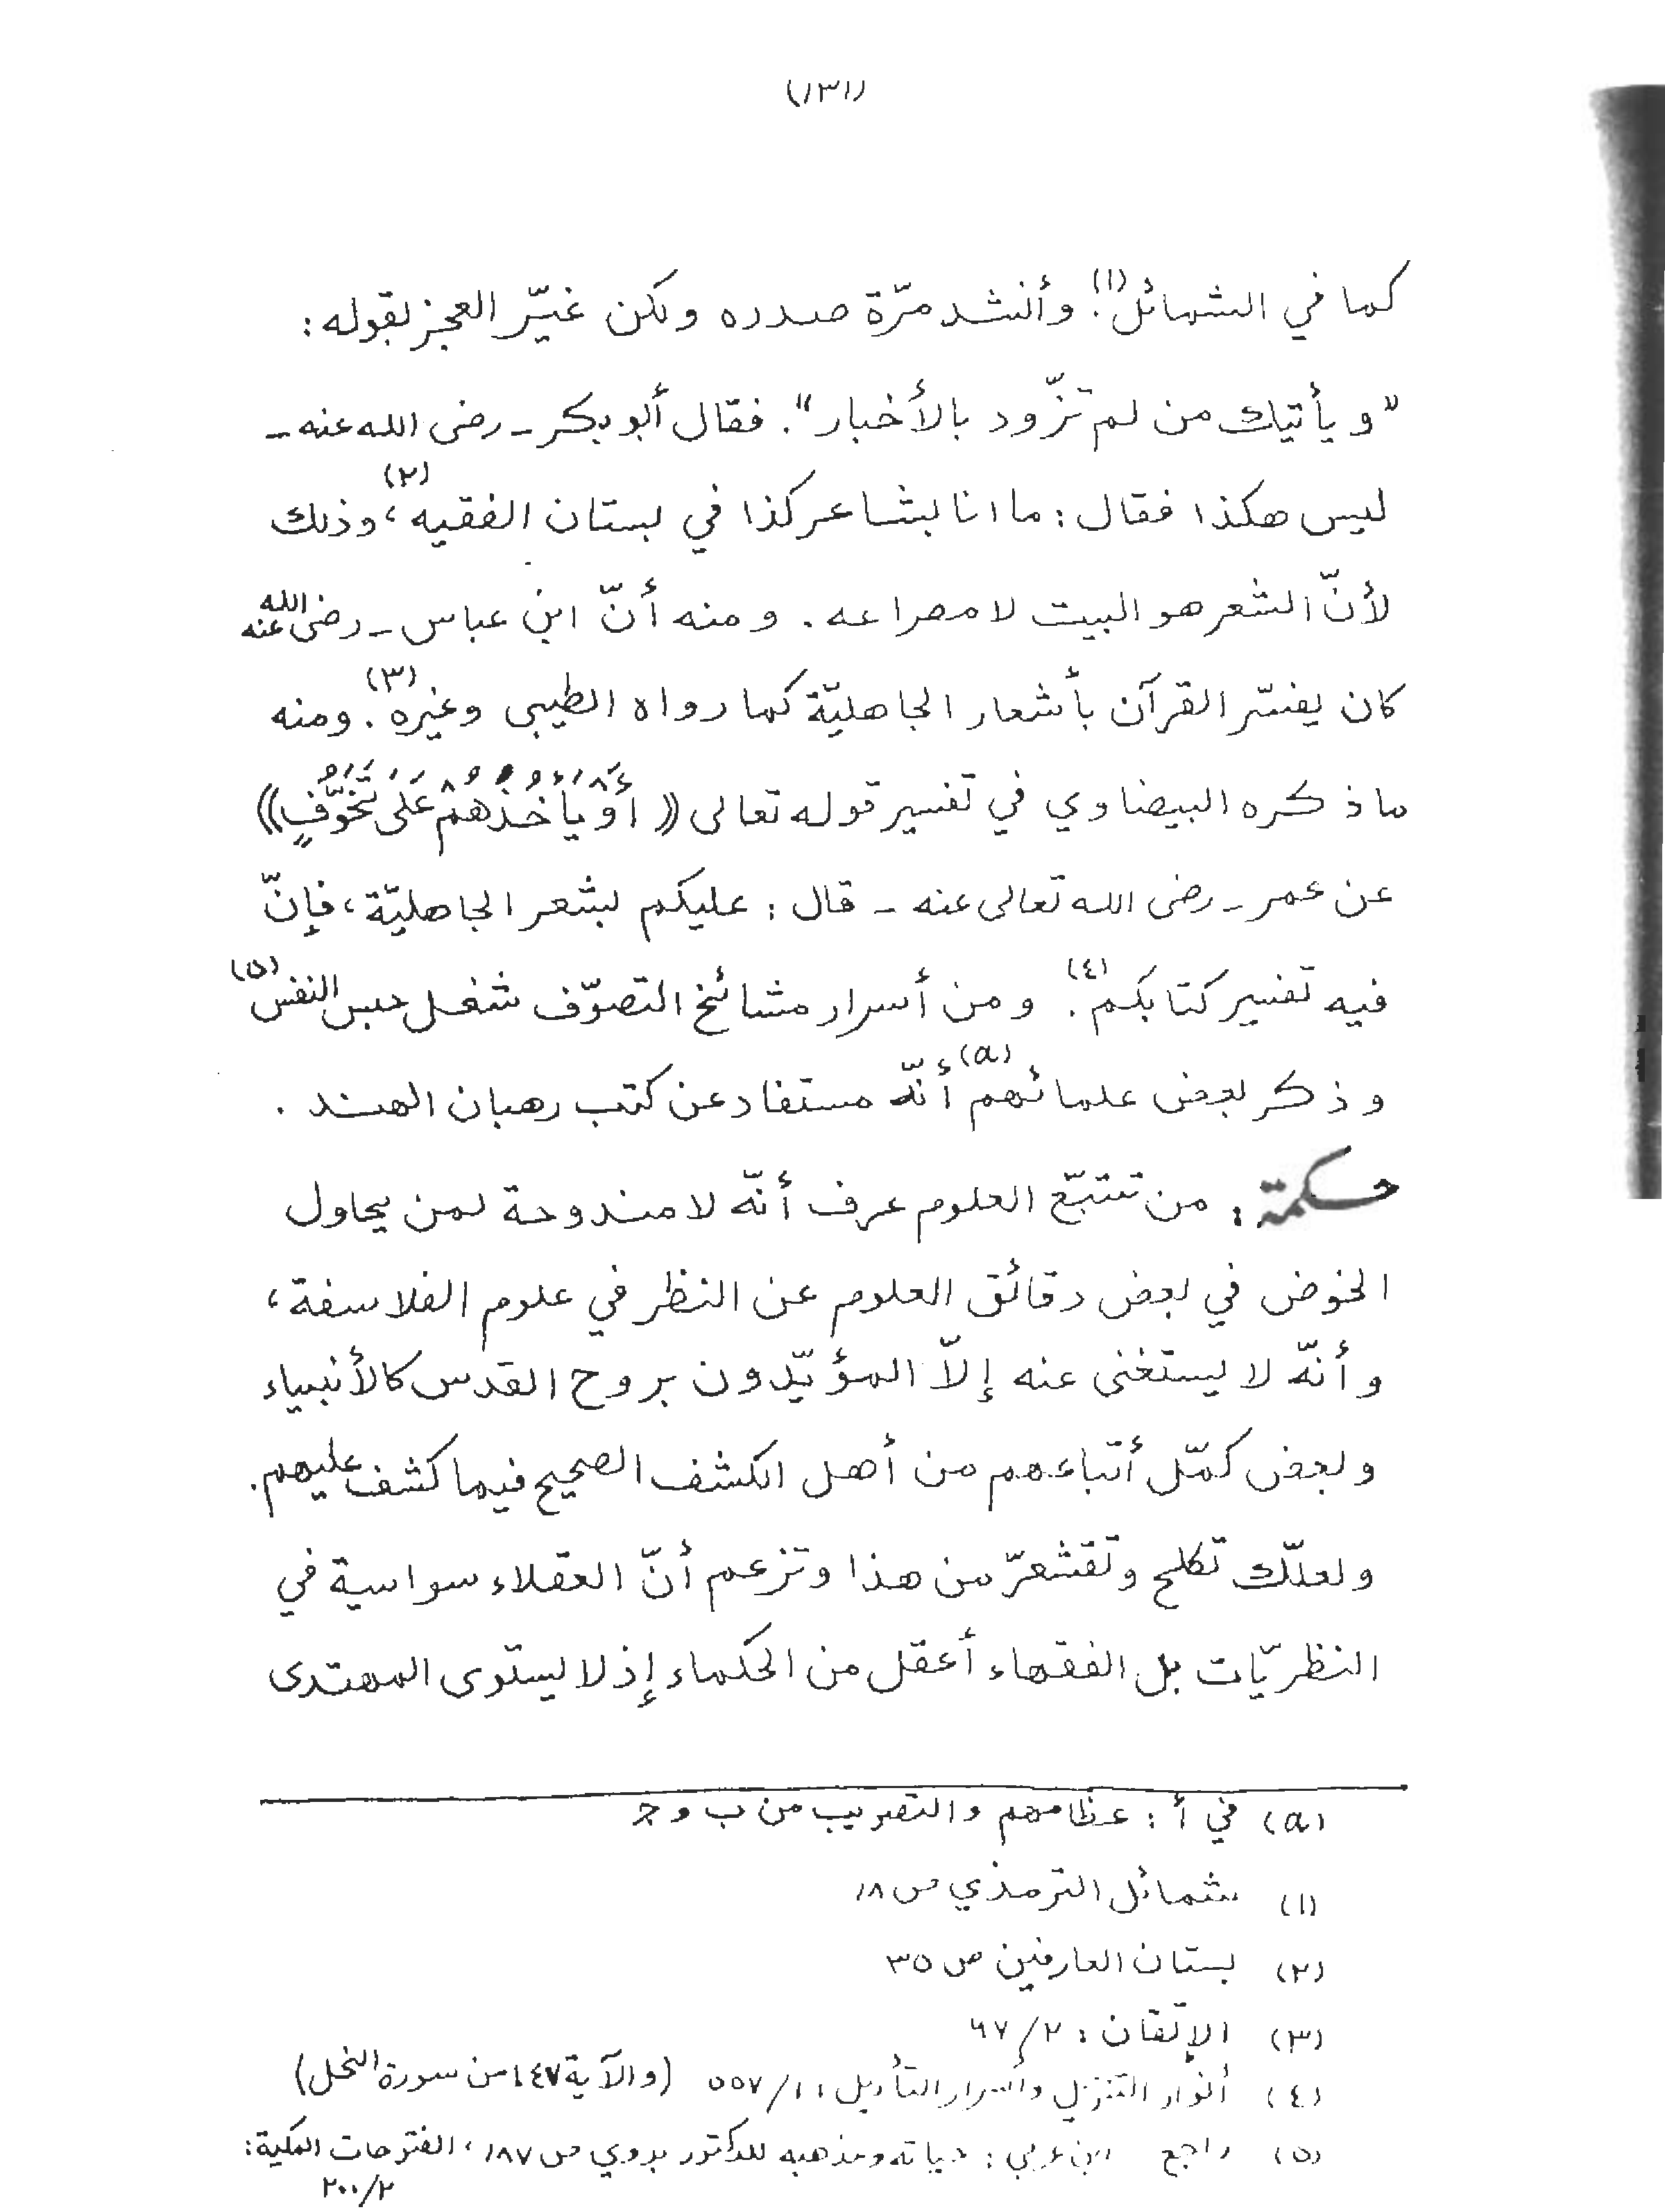 (١٣١)
كما في الشمائل(١). وأنشد مرّة صدره ولكن غيّر العجز بقوله :
"ويأتيك من لم تزّود بالأخبار". فقال أبوبكر ـ رضى الله عنه ـ
ليس هكذا فقال : ما انا بشاعر كذا في بستان الفقيه(٢)، وذلك
لأنّ الشعر هو البيت لا مصراعه . ومنه أنّ ابن عباس ـ رضى الله عنه
كان يفسّر القرآن بأشعار الجاهليّة كما رواه الطيبى وغيره(٣). ومنه
ما ذكره البيضاوي في تفسير قوله تعالى ((أَوْ يَأْخُذَهُمْ عَلَى تَخَوُّفٍ))
عن عمر ـ رضى الله تعالى عنه ـ قال : عليكم بشعر الجاهليّة، فإنّ
فيه تفسير كتابكم(٤). ومن أسرار مشائخ التصوّف شغل حبس النفس(٥)
وذكر بعض علمائهم(a) أنّه مستفاد عن كتب رهبان الهند .
حكمة : من تتبّع العلوم عرف أنّه لا مندوحة لمن يحاول
الخوض في بعض دقائق العلوم عن النظر في علوم الفلاسفة،
وأنّه لا يستغنى عنه إلاّ المؤيّدون بروح القدس كالأنبياء
وبعض كمّل أتباعهم من أهل الكشف الصحيح فيما كشف عليهم.
ولعلّك تكلح وتقشعرّ من هذا وتزعم أنّ العقلاء سواسية في
النظريّات بل الفقهاء أعقل من الحكماء إذ لا يستوى المهتدى
(a) في أ : عظامهم والتصويب من ب و جـ
(١) شمائل الترمذي ص ١٨
(٢) بستان العارفين ص ٣٥
(٣) الإتقان : ٢/٦٧
(٤) أنوار التنزيل وأسرار التأويل : ١/٥٥٧ (والآية ٤٧ من سورة النحل)
(٥) راجع ابن عربي : حياته ومذهبه للدكتور بدوي ص ١٨٧، الفتوحات المكية :
٢/٢٠٠